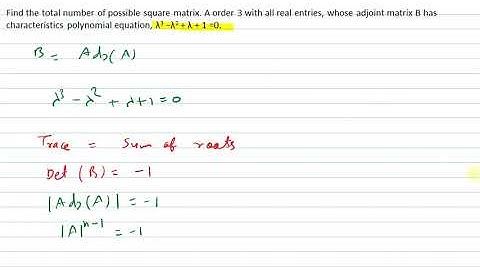 Find the total number of possible square matrix. A order 3 with all real entries, whose adjoint matrix B has
characteristics polynomial equation, λ³ -λ² + λ + 1 =0.
B = Adj(A)
λ³ - λ² + λ + 1 = 0
Trace = Sum of roots
Det (B) = -1
|Adj(A)| = -1
|A|ⁿ⁻¹ = -1